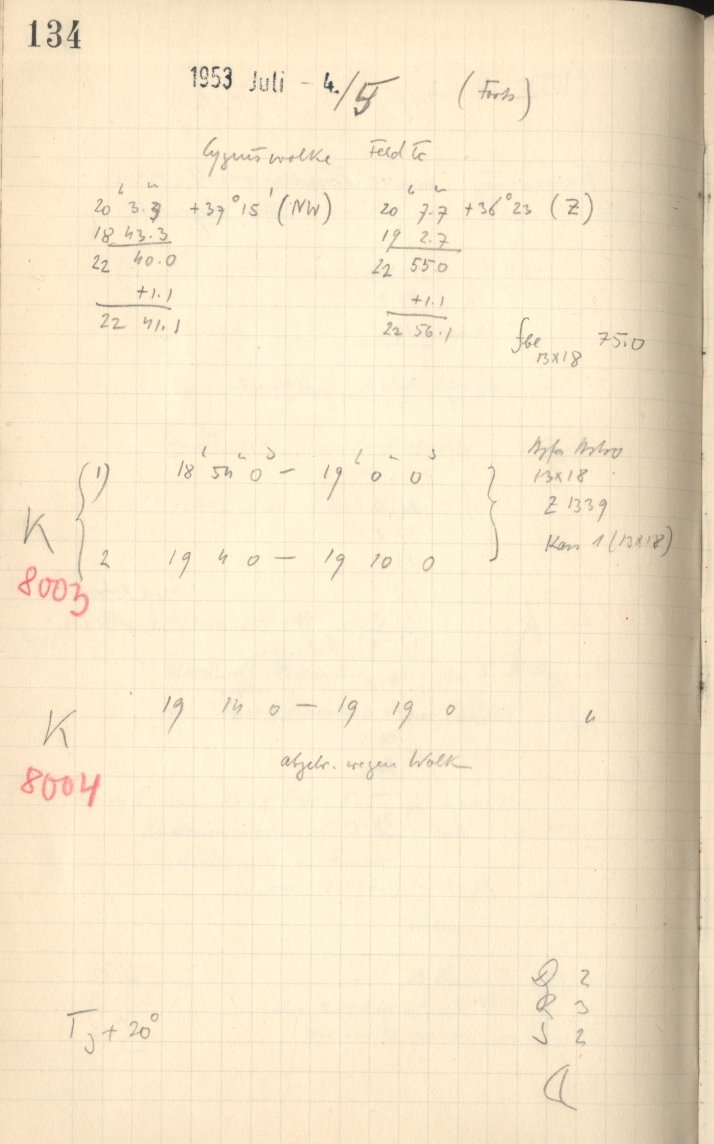 134
1953 Juli - 4./5 (Forts)
Cygnuswolke Feld
20ʰ 3.3ᵐ +37°15' (NW) 20ʰ 7.7ᵐ +36°23 (Z)
18 43.3 19 2.7
22 40.0 22 55.0
+1.1 +1.1
22 41.1 22 56.1
fbe 13x18 75.0
Agfa Astro
1) 18ʰ 54ᵐ 0ˢ - 19ʰ 0ᵐ 0ˢ 13x18
Z 1339
K
Kass 1 (13x18)
2 19 4 0 - 19 10 0
8003
K 19 14 0 - 19 19 0 "
abgebr. wegen Wolk
8004
Q 2
R 3
S 2
T J + 20°